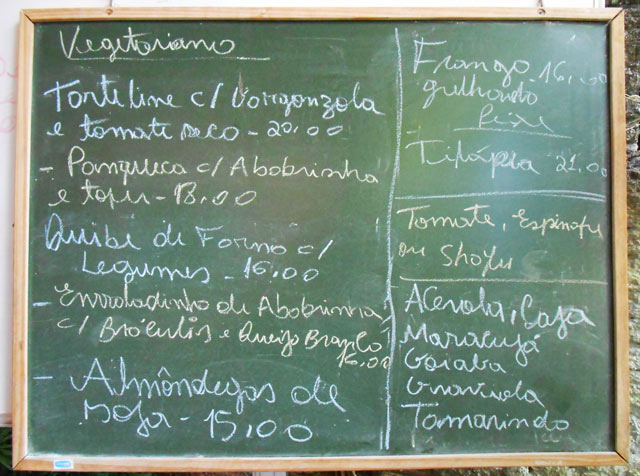 Vegetariano
Torteline c/ Gorgonzola
e tomate seco - 20,00
- Panqueca c/ Abobrinha
e tofu - 13,00
Quibe de Forno c/
Legumes - 16,00
- Enroladinho de Abobrinha
c/ Brócolis e Queijo Branco
16,00
- Almôndegas de
soja - 15,00
Frango 16,00
grelhado
Peixe
- Tilápia 21,00
Tomate, Espinafre
ou Shoyu
Acerola, Caja
Maracujá
Goiaba
Graviola
Tamarindo